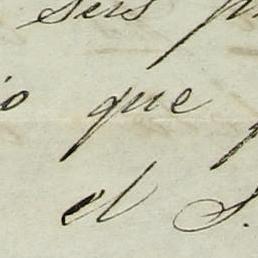 seis
que
el S.